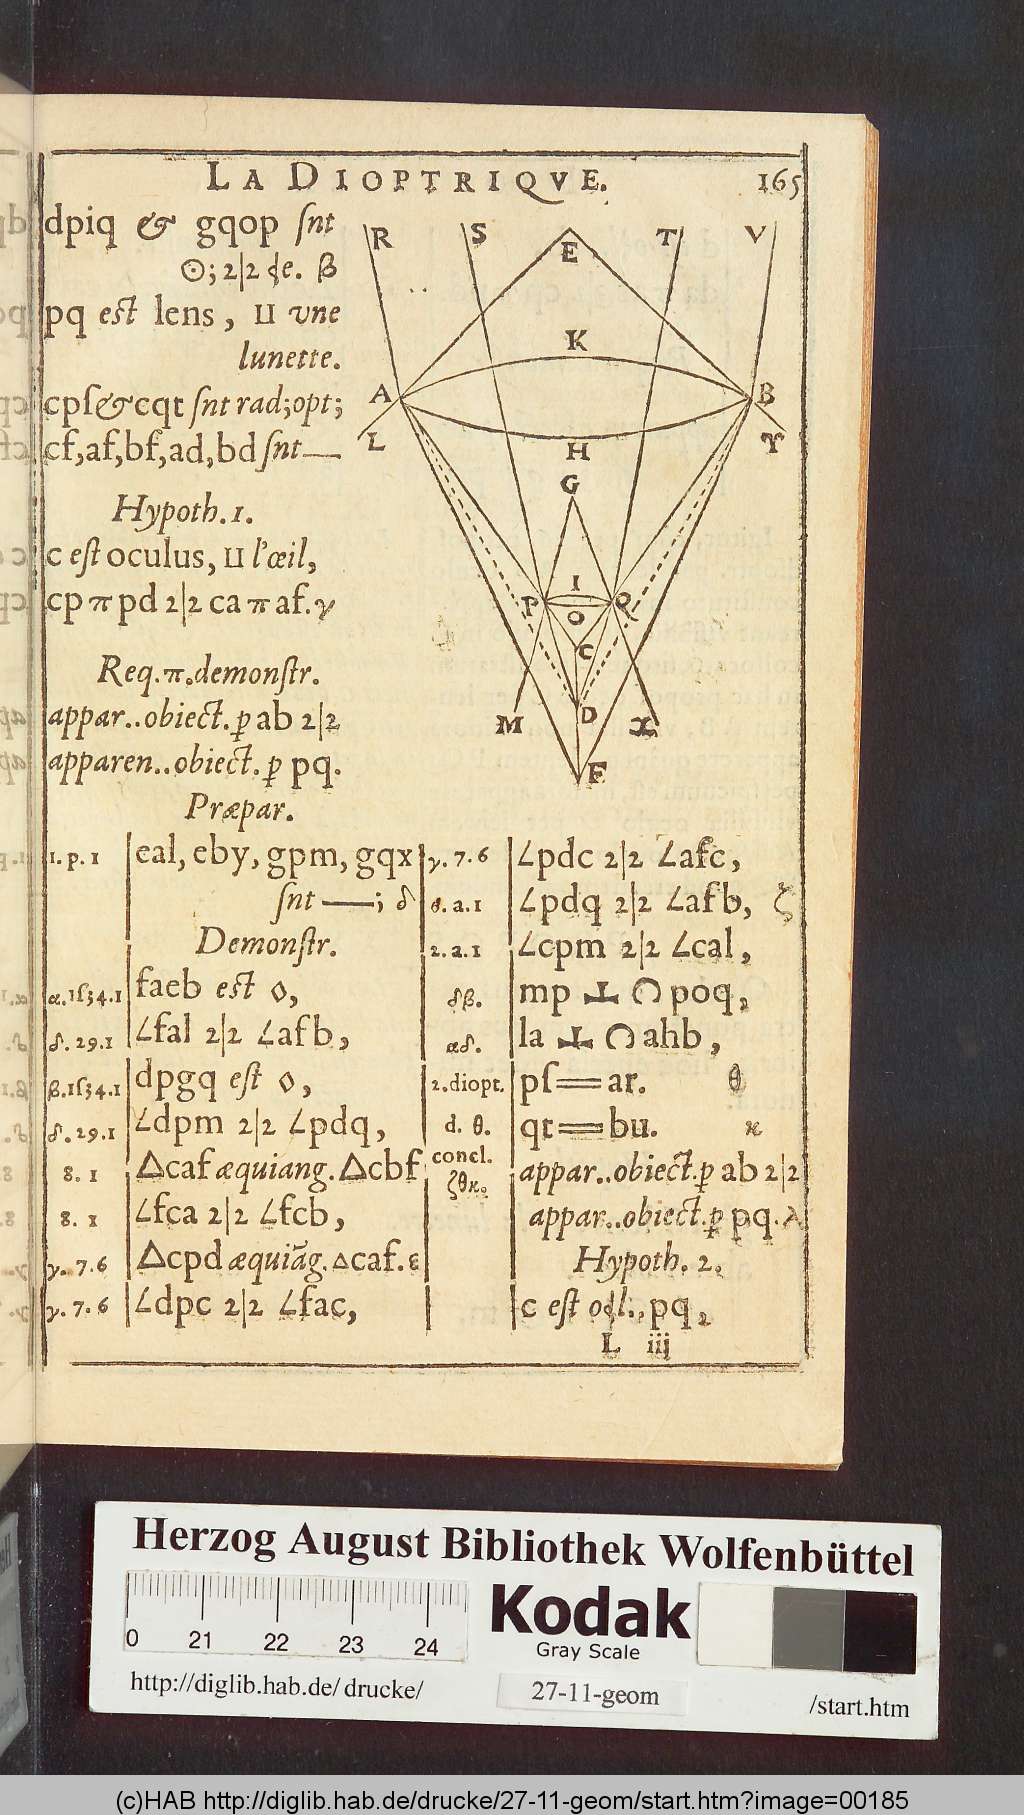 LA DIOPTRIQVE. 165
dpiq & gqop ſnt
☉; 2|2 de. β
pq est lens, ⊔ vne
lunette.
cpſ & cqt ſnt rad; opt;
cf, af, bf, ad, bd ſnt —
Hypoth. 1.
c eſt oculus, ⊔ l'œil,
cp π pd 2|2 ca π af. γ
Req. π. demonſtr.
appar.. obiect. p ab 2|2
apparen.. obiect. p pq.
R S E T V
K
A B
L H Y
G
I
P Q
O
C
M D X
F
Præpar.
1. p. 1 eal, eby, gpm, gqx
ſnt —; δ
Demonſtr.
α. 1ſ34.1 faeb est ◊,
δ. 29.1 ∠fal 2|2 ∠afb,
β. 1ſ34.1 dpgq eſt ◊,
δ. 29.1 ∠dpm 2|2 ∠pdq,
8. 1 △caf æquiang. △cbf
8. 1 ∠fca 2|2 ∠fcb,
γ. 7. 6 △cpd æquiãg. △caf. ε
γ. 7. 6 ∠dpc 2|2 ∠fac,
γ. 7. 6 ∠pdc 2|2 ∠afc,
6. a. 1 ∠pdq 2|2 ∠afb, ζ
2. a. 1 ∠cpm 2|2 ∠cal,
δβ. mp ⊥ ◠ poq,
αδ. la ⊥ ◠ ahb,
2. diopt. pſ == ar. θ
d. θ. qt == bu. κ
concl.
ζθκ. appar.. obiect. p ab 2|2
appar.. obiect. p pq. λ
Hypoth. 2.
c eſt pq,
L iij
Herzog August Bibliothek Wolfenbüttel
0 21 22 23 24
Kodak
Gray Scale
http://diglib.hab.de/drucke/ 27-11-geom /start.htm
(c)HAB http://diglib.hab.de/drucke/27-11-geom/start.htm?image=00185